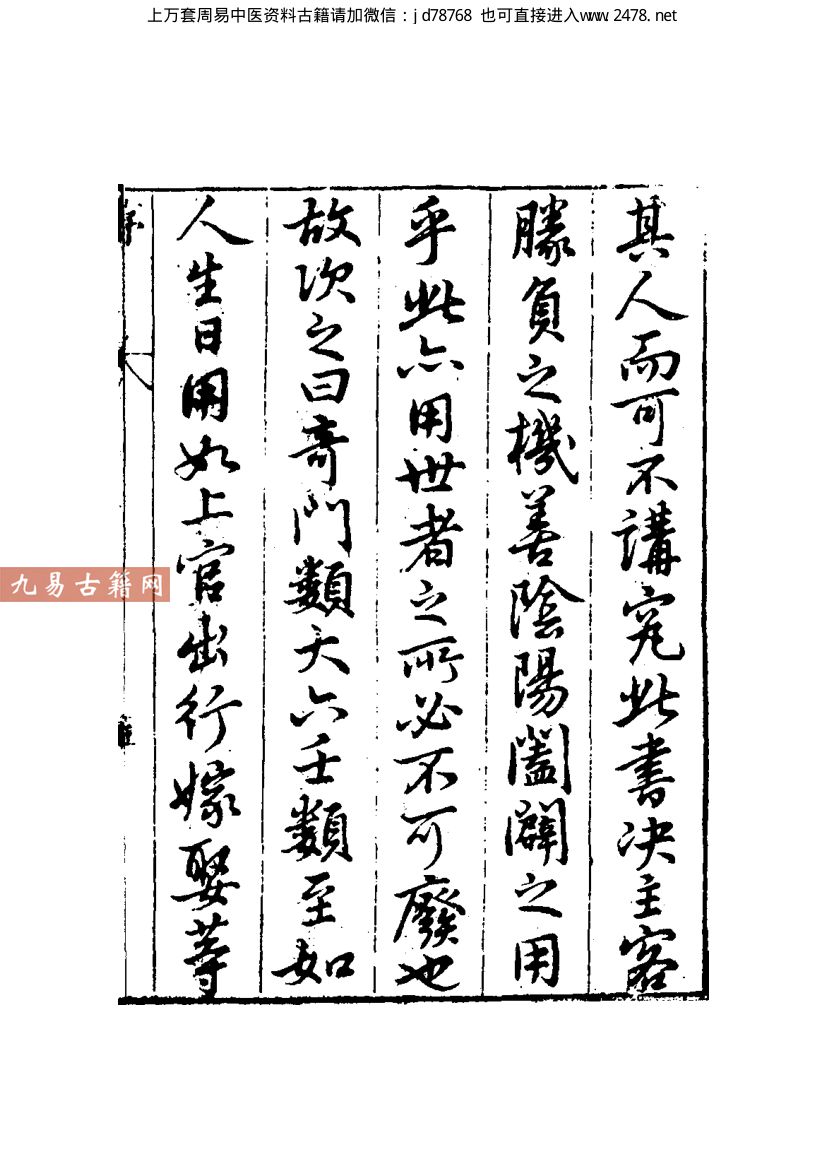 上万套周易中医资料古籍请加微信：jd78768 也可直接进入www.2478.net
其人而可不講究此書決主客
勝負之機善陰陽闔闢之用
乎此亦用世者之所必不可廢也
故次之曰奇門類大六壬類至如
人生日用如上官出行嫁娶等
序
九易古籍网